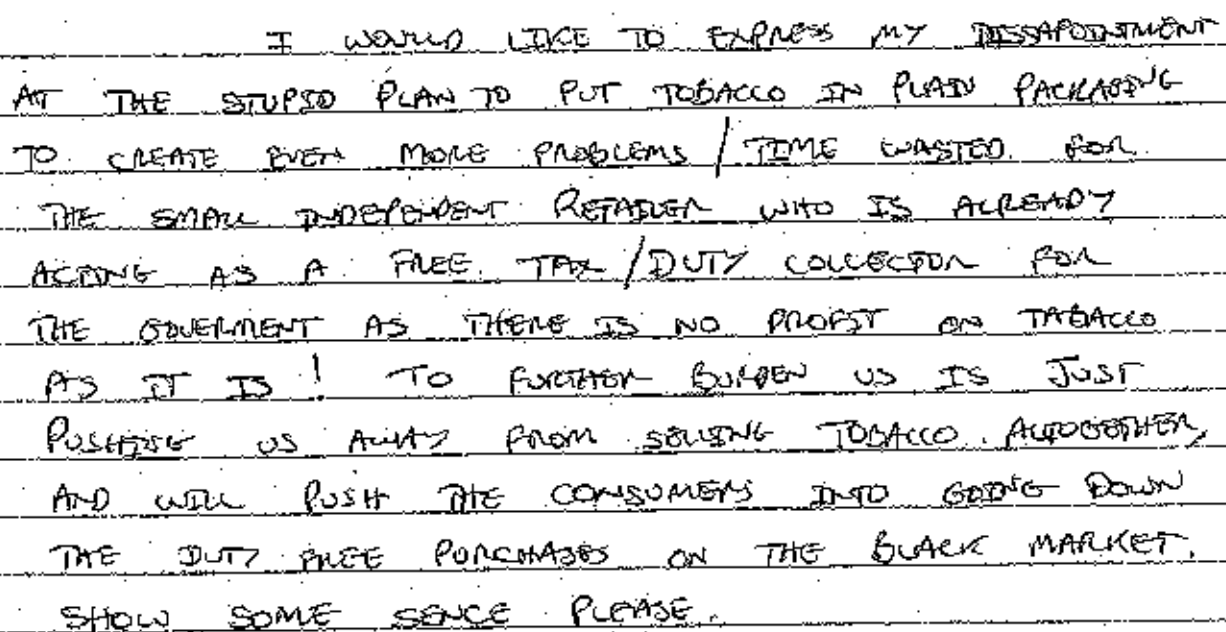 I WOULD LIKE TO EXPRESS MY DISSAPOINTMENT
AT THE STUPID PLAN TO PUT TOBACCO IN PLAIN PACKAGING
TO CREATE EVEN MORE PROBLEMS / TIME WASTED FOR
THE SMALL INDEPENDENT RETAILER WHO IS ALREADY
ACTING AS A FREE TAX / DUTY COLLECTOR FOR
THE GOVERMENT AS THERE IS NO PROFIT ON TABACCO
AS IT IS! TO FURTHER BURDEN US IS JUST
PUSHING US AWAY FROM SELLING TOBACCO ALTOGETHER,
AND WILL PUSH THE CONSUMERS INTO GOING DOWN
THE DUTY FREE PURCHASES ON THE BLACK MARKET.
SHOW SOME SENCE PLEASE.